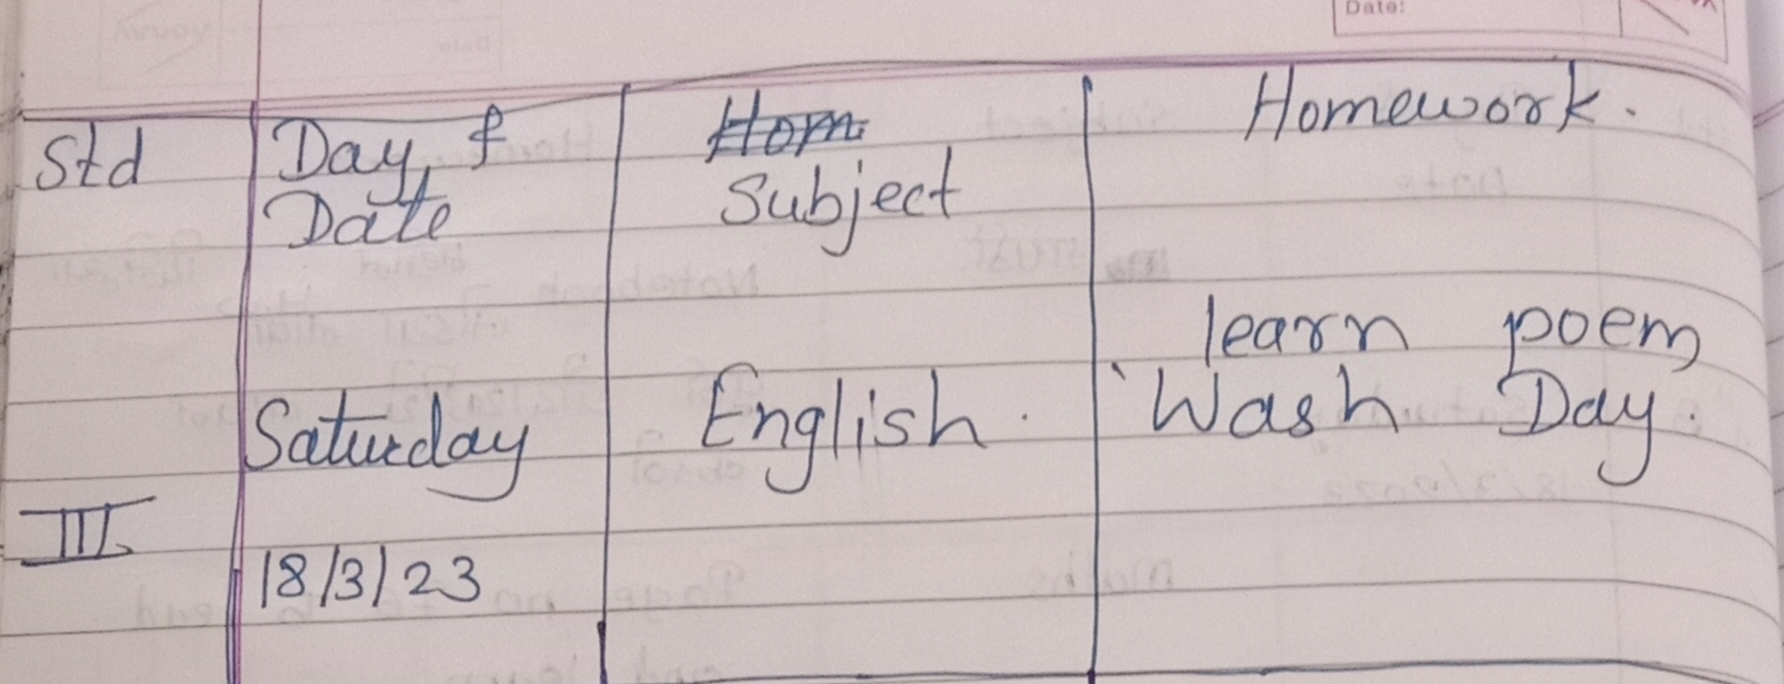 Date:
Std Day & Hom Homework.
Date Subject
learn poem
Saturday English. 'Wash Day.
III
18/3/23